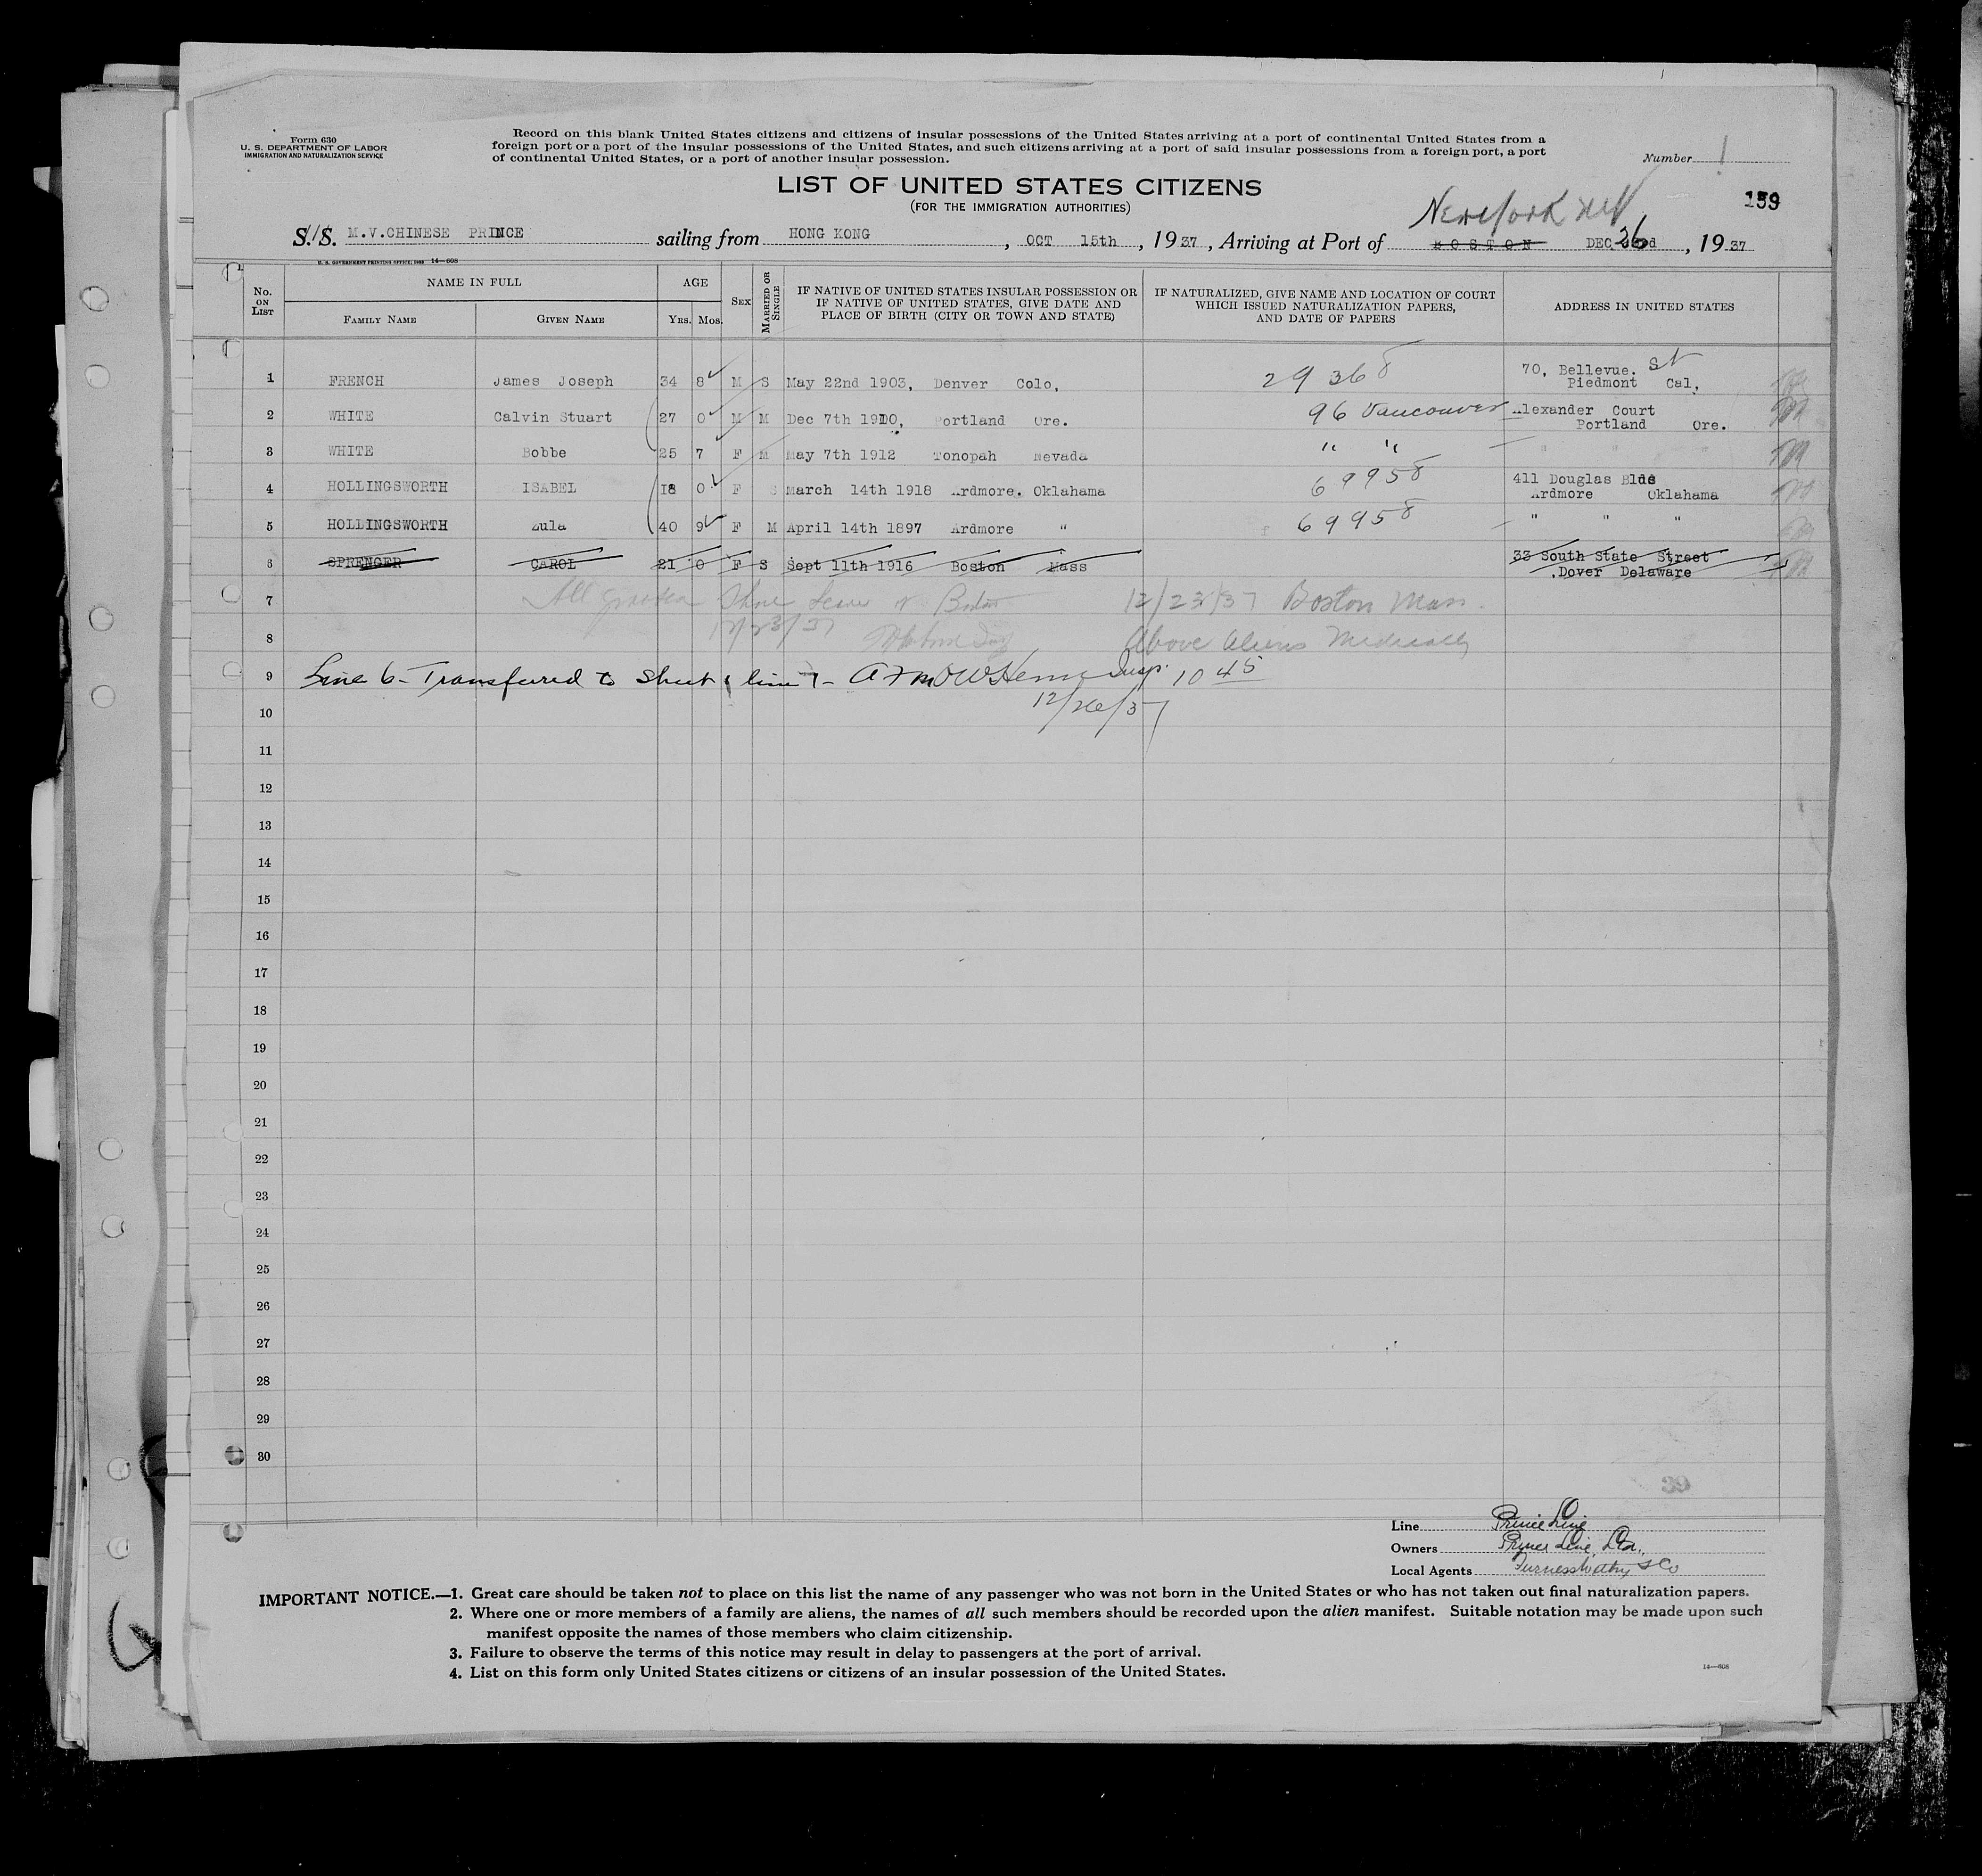 Form 630
U. S. DEPARTMENT OF LABOR
IMMIGRATION AND NATURALIZATION SERVICE
Record on this blank United States citizens and citizens of insular possessions of the United States arriving at a port of continental United States from a
foreign port or a port of the insular possessions of the United States, and such citizens arriving at a port of said insular possessions from a foreign port, a port
of continental United States, or a port of another insular possession.
Number 1
LIST OF UNITED STATES CITIZENS
(FOR THE IMMIGRATION AUTHORITIES)
159
New York
S. S. M.V.CHINESE PRINCE sailing from HONG KONG, OCT 15th, 1937, Arriving at Port of BOSTON DEC 26, 1937
U. S. GOVERNMENT PRINTING OFFICE: 1933 14-608
No. ON LIST NAME IN FULL AGE SEX MARRIED OR SINGLE IF NATIVE OF UNITED STATES INSULAR POSSESSION OR IF NATIVE OF UNITED STATES, GIVE DATE AND PLACE OF BIRTH (CITY OR TOWN AND STATE) IF NATURALIZED, GIVE NAME AND LOCATION OF COURT WHICH ISSUED NATURALIZATION PAPERS, AND DATE OF PAPERS ADDRESS IN UNITED STATES
FAMILY NAME GIVEN NAME YRS. MOS.
1 FRENCH James Joseph 34 8 M S May 22nd 1903, Denver Colo, 29368 70, Bellevue. St
Piedmont Cal,
2 WHITE Calvin Stuart 27 0 M M Dec 7th 1910, Portland Ore. 96 Vancouver Alexander Court
Portland Ore.
3 WHITE Bobbe 25 7 F M May 7th 1912 Tonopah Nevada " " " " "
4 HOLLINGSWORTH ISABEL 18 0 F S March 14th 1918 Ardmore. Oklahoma 69958 411 Douglas Bldg
Ardmore Oklahoma
5 HOLLINGSWORTH Lula 40 9 F M April 14th 1897 Ardmore " 69958 " " "
6 SPRENGER CAROL 21 0 F S Sept 11th 1916 Boston Mass 33 South State Street
Dover Delaware
7 All granted Shore Leave at Boston 12/23/37 Boston Mass.
8 12/23/37 Above Aliens Medically
9 Line 6 - Transferred to Sheet line 1 - Insp. 10 45
10 12/26/37
11
12
13
14
15
16
17
18
19
20
21
22
23
24
25
26
27
28
29
30
39
Line Prince Line
Owners Prince Line, Ltd.
Local Agents Furness Withy & Co
IMPORTANT NOTICE.—1. Great care should be taken not to place on this list the name of any passenger who was not born in the United States or who has not taken out final naturalization papers.
2. Where one or more members of a family are aliens, the names of all such members should be recorded upon the alien manifest. Suitable notation may be made upon such
manifest opposite the names of those members who claim citizenship.
3. Failure to observe the terms of this notice may result in delay to passengers at the port of arrival.
4. List on this form only United States citizens or citizens of an insular possession of the United States.
14—608